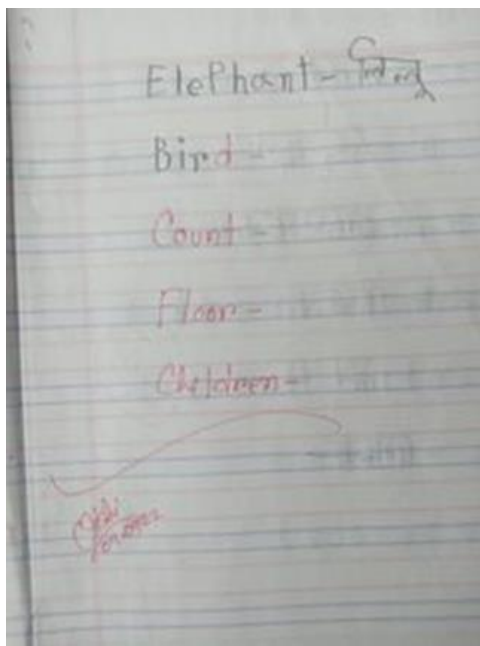 Elephant - लिलू
Bird -
Count -
Floor -
Children -